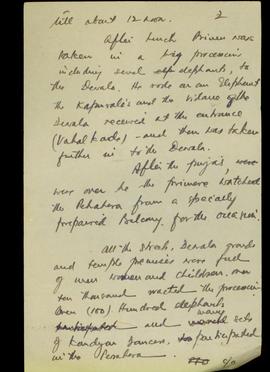 till about 12 noon. 2
After Lunch Prince was
taken in a big procession
including several elephants, to
the Dewala. He rode on an Elephant
the Kapurala's and the Vidane of the
Dewala received at the entrance
(Vahalkada) - and then was taken
further in to the Dewala.
After the pujas, were
were over he - the prince watched
the Perahera from a specialy
prepaired Balcony. for the occasion.
All the streets, Dewala grounds
and temple premises were full
of men women and children, over
ten thousand watched the procession.
Over (100) Hundred elephants
and many sets
of Kandyan Dancers, participated
in the Perahera.
P/O